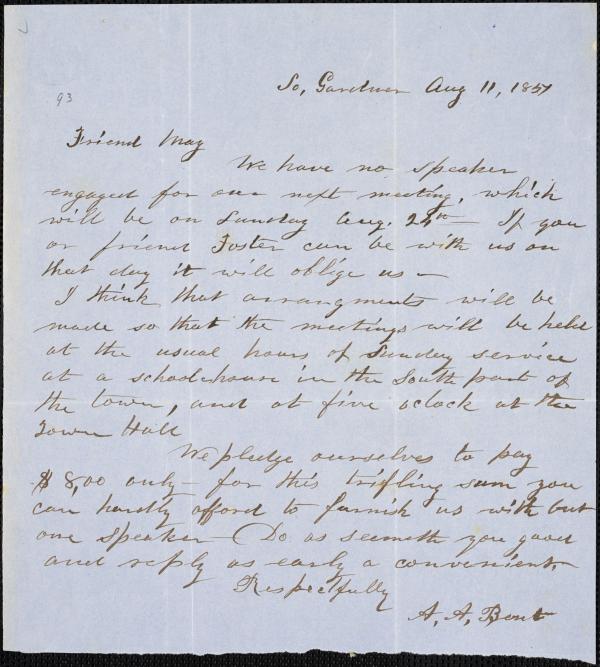 93
So, Gardner Aug 11, 1857
Friend May
We have no speaker
engaged for our next meeting, which
will be on Sunday Aug. 24th — If you
or friend Foster can be with us on
that day it will oblige us —
I think that arrangments will be
made so that the meetings will be held
at the usual hours of Sunday service
at a school-house in the South part of
the town, and at five oclock at the
Town Hall
We pledge ourselves to pay
$8,00 only — for this trifling sum you
can hardly afford to furnish us with but
one speaker — Do as seemeth you good
and reply as early a convenient.
Respectfully
A, A, Bent